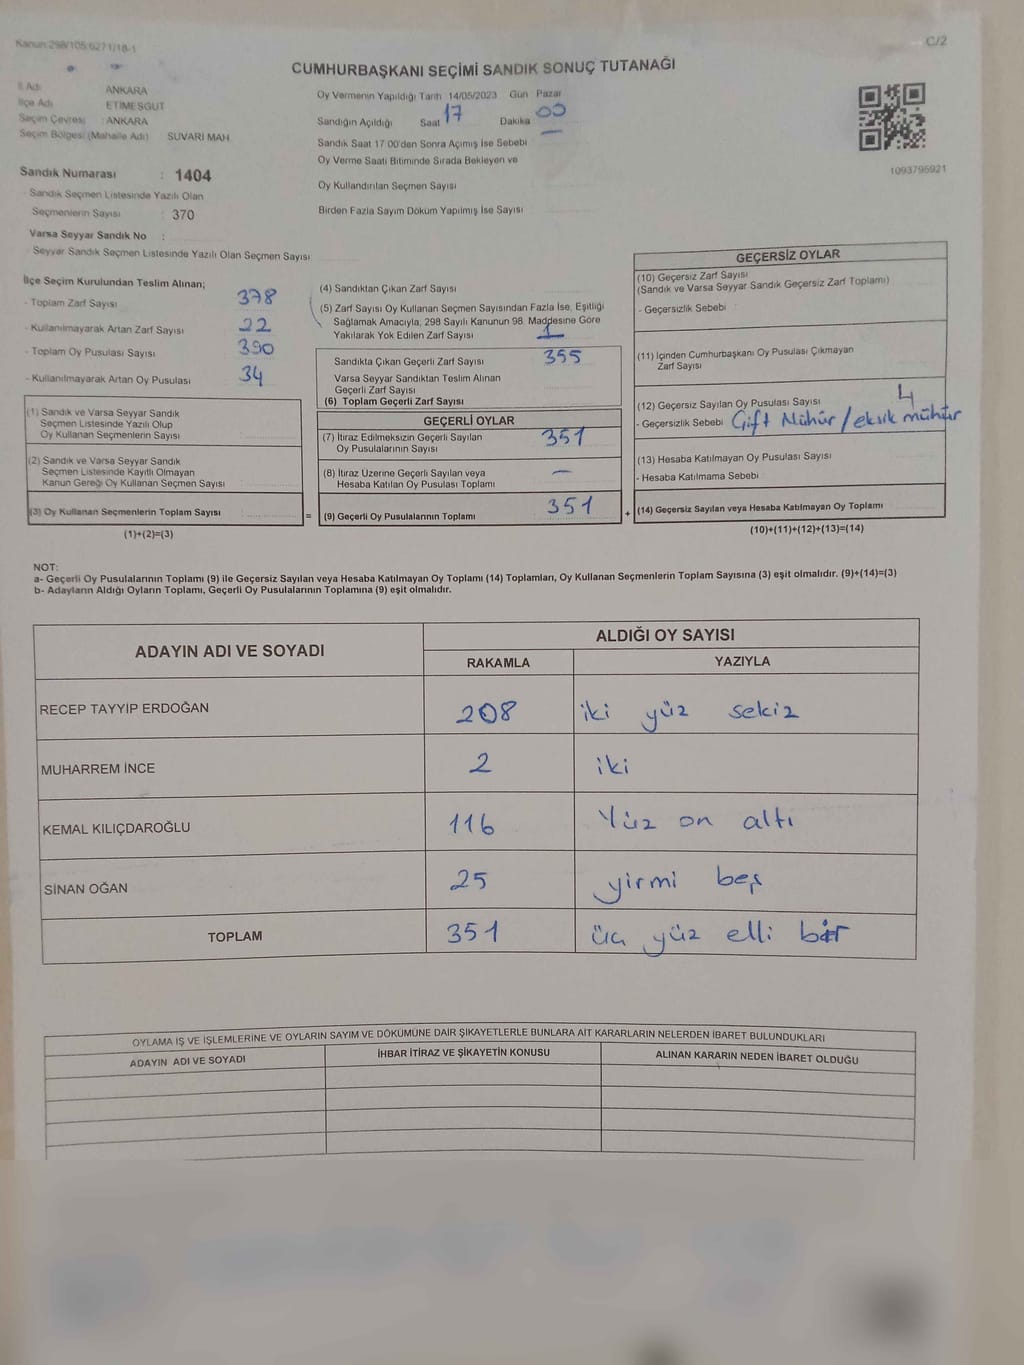 Kanun:298/105;6271/18-1
C/2
CUMHURBAŞKANI SEÇİMİ SANDIK SONUÇ TUTANAĞI
İl Adı : ANKARA
İlçe Adı : ETİMESGUT
Seçim Çevresi : ANKARA
Seçim Bölgesi (Mahalle Adı) SUVARİ MAH
Oy Vermenin Yapıldığı Tarih 14/05/2023 Gün Pazar
Sandığın Açıldığı Saat 17 Dakika 00
Sandık Saat 17:00'den Sonra Açımış İse Sebebi —
Oy Verme Saati Bitiminde Sırada Bekleyen ve
Oy Kullandırılan Seçmen Sayısı
Birden Fazla Sayım Döküm Yapılmış İse Sayısı
1093795921
Sandık Numarası : 1404
- Sandık Seçmen Listesinde Yazılı Olan
Seçmenlerin Sayısı : 370
Varsa Seyyar Sandık No :
- Seyyar Sandık Seçmen Listesinde Yazılı Olan Seçmen Sayısı
İlçe Seçim Kurulundan Teslim Alınan;
- Toplam Zarf Sayısı 378
- Kullanılmayarak Artan Zarf Sayısı 22
- Toplam Oy Pusulası Sayısı 390
- Kullanılmayarak Artan Oy Pusulası 34
(1) Sandık ve Varsa Seyyar Sandık
Seçmen Listesinde Yazılı Olup
Oy Kullanan Seçmenlerin Sayısı
(2) Sandık ve Varsa Seyyar Sandık
Seçmen Listesinde Kayıtlı Olmayan
Kanun Gereği Oy Kullanan Seçmen Sayısı
(3) Oy Kullanan Seçmenlerin Toplam Sayısı
=
(1)+(2)=(3)
(4) Sandıktan Çıkan Zarf Sayısı
(5) Zarf Sayısı Oy Kullanan Seçmen Sayısından Fazla İse, Eşitliği
Sağlamak Amacıyla, 298 Sayılı Kanunun 98. Maddesine Göre
Yakılarak Yok Edilen Zarf Sayısı 1
Sandıkta Çıkan Geçerli Zarf Sayısı 355
Varsa Seyyar Sandıktan Teslim Alınan
Geçerli Zarf Sayısı
(6) Toplam Geçerli Zarf Sayısı
GEÇERLİ OYLAR
(7) İtiraz Edilmeksizin Geçerli Sayılan
Oy Pusulalarının Sayısı 351
(8) İtiraz Üzerine Geçerli Sayılan veya
Hesaba Katılan Oy Pusulası Toplamı —
(9) Geçerli Oy Pusulalarının Toplamı 351
+
GEÇERSİZ OYLAR
(10) Geçersiz Zarf Sayısı
(Sandık ve Varsa Seyyar Sandık Geçersiz Zarf Toplamı)
- Geçersizlik Sebebi :
(11) İçinden Cumhurbaşkanı Oy Pusulası Çıkmayan
Zarf Sayısı
(12) Geçersiz Sayılan Oy Pusulası Sayısı 4
- Geçersizlik Sebebi : Çift Mühür / eksik mühür
(13) Hesaba Katılmayan Oy Pusulası Sayısı
- Hesaba Katılmama Sebebi
(14) Geçersiz Sayılan veya Hesaba Katılmayan Oy Toplamı
(10)+(11)+(12)+(13)=(14)
NOT:
a- Geçerli Oy Pusulalarının Toplamı (9) ile Geçersiz Sayılan veya Hesaba Katılmayan Oy Toplamı (14) Toplamları, Oy Kullanan Seçmenlerin Toplam Sayısına (3) eşit olmalıdır. (9)+(14)=(3)
b- Adayların Aldığı Oyların Toplamı, Geçerli Oy Pusulalarının Toplamına (9) eşit olmalıdır.
ADAYIN ADI VE SOYADI
ALDIĞI OY SAYISI
RAKAMLA YAZIYLA
RECEP TAYYİP ERDOĞAN 208 iki yüz sekiz
MUHARREM İNCE 2 iki
KEMAL KILIÇDAROĞLU 116 Yüz on altı
SİNAN OĞAN 25 yirmi beş
TOPLAM 351 üç yüz elli bir
OYLAMA İŞ VE İŞLEMLERİNE VE OYLARIN SAYIM VE DÖKÜMÜNE DAİR ŞİKAYETLERLE BUNLARA AİT KARARLARIN NELERDEN İBARET BULUNDUKLARI
ADAYIN ADI VE SOYADI İHBAR İTİRAZ VE ŞİKAYETİN KONUSU ALINAN KARARIN NEDEN İBARET OLDUĞU